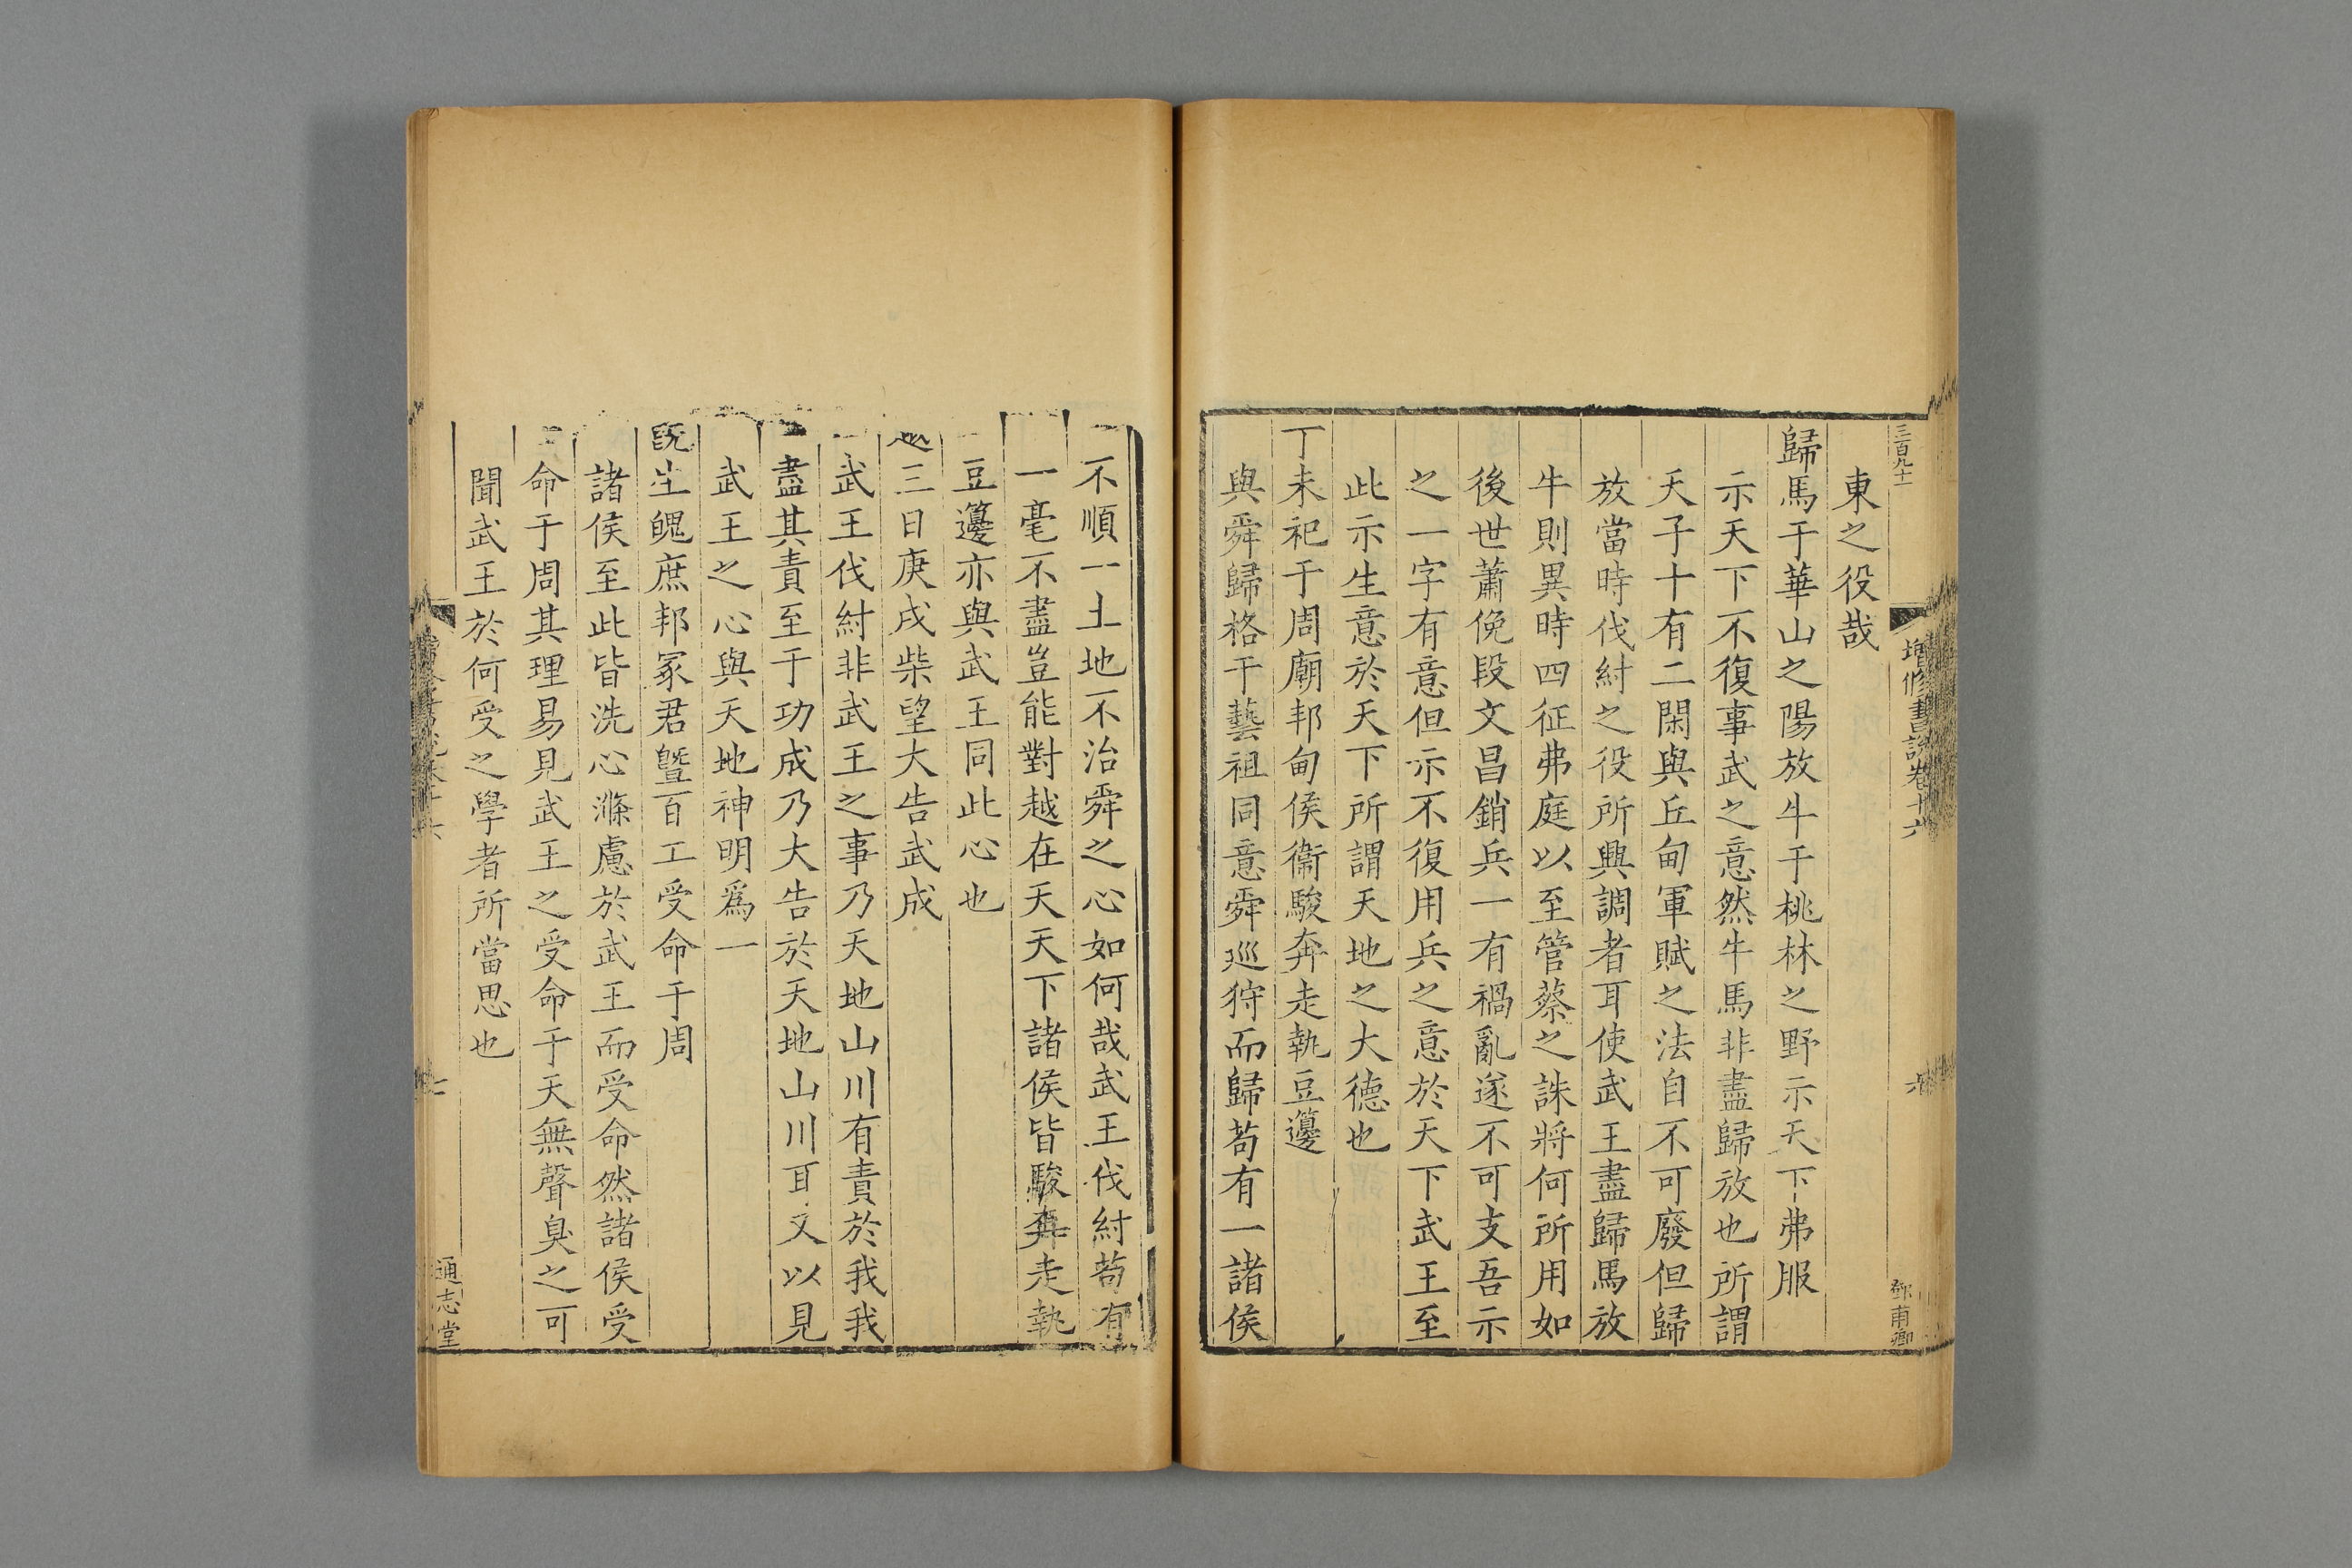 三百九十一
增修書說卷十六
六
鄧甫卿
東之役哉
歸馬于華山之陽放牛于桃林之野示天下弗服
示天下不復事武之意然牛馬非盡歸放也所謂
天子十有二閑與丘甸軍賦之法自不可廢但歸
放當時伐紂之役所興調者耳使武王盡歸馬放
牛則異時四征弗庭以至管蔡之誅將何所用如
後世蕭俛段文昌銷兵一有禍亂遂不可支吾示
之一字有意但示不復用兵之意於天下武王至
此示生意於天下所謂天地之大德也
丁未祀于周廟邦甸侯衞駿奔走執豆籩
與舜歸格于藝祖同意舜巡狩而歸苟有一諸侯
不順一土地不治舜之心如何哉武王伐紂苟有
一毫不盡豈能對越在天天下諸侯皆駿奔走執
豆籩亦與武王同此心也
越三日庚戌柴望大告武成
武王伐紂非武王之事乃天地山川有責於我我
盡其責至于功成乃大告於天地山川耳又以見
武王之心與天地神明爲一
旣生魄庶邦冢君曁百工受命于周
諸侯至此皆洗心滌慮於武王而受命然諸侯受
命于周其理易見武王之受命于天無聲臭之可
聞武王於何受之學者所當思也
七
通志堂